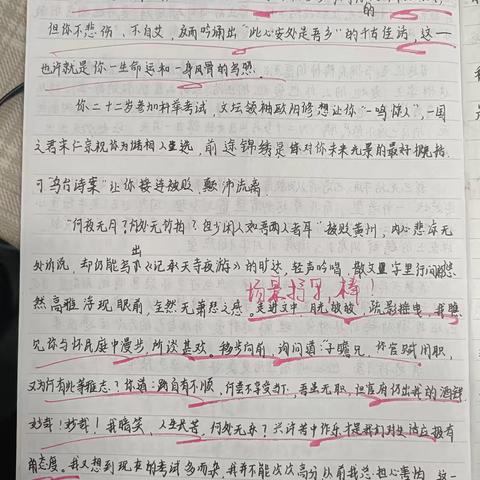 的
但你不悲伤、不自艾，反而吟诵出"此心安处是吾乡"的千古佳话，这一
也许就是你一生命运和一身风骨的写照。
你二十二岁参加科举考试，文坛领袖欧阳修想让你"一鸣惊人"，一国
之君宋仁宗视你为宰相人选，前途锦绣是你对你未来光景的最好概括.
可"乌台诗案"让你接连被贬，颠沛流离。
"何夜无月？何处无竹柏？但少闲人如吾两人者耳"被贬黄州，内心悲凉无
出
处诉说，却仍能写《记承天寺夜游》的旷达，轻声吟唱，散文里字里行间
场景描写，棒！
然高雅浮现眼前，全然无萧瑟之感。走进文中，月光皎皎，疏影摇曳，我瞧
见你与怀民庭中漫步，所谈甚欢。移步向前，询问道："子瞻兄，你官弱闲职，
又为何有此等雅志？"你道："路自有不顺，何要不享受当下，吾虽无职，但官府仍出我的酒钱
妙哉！妙哉！我暗笑，人生皆苦，何处无乐？兴许苦中作乐才是我们对生活应报有
的态度。我又想到现在的考试多而杂，我并不能次次高分，从前我总担心害怕，这一